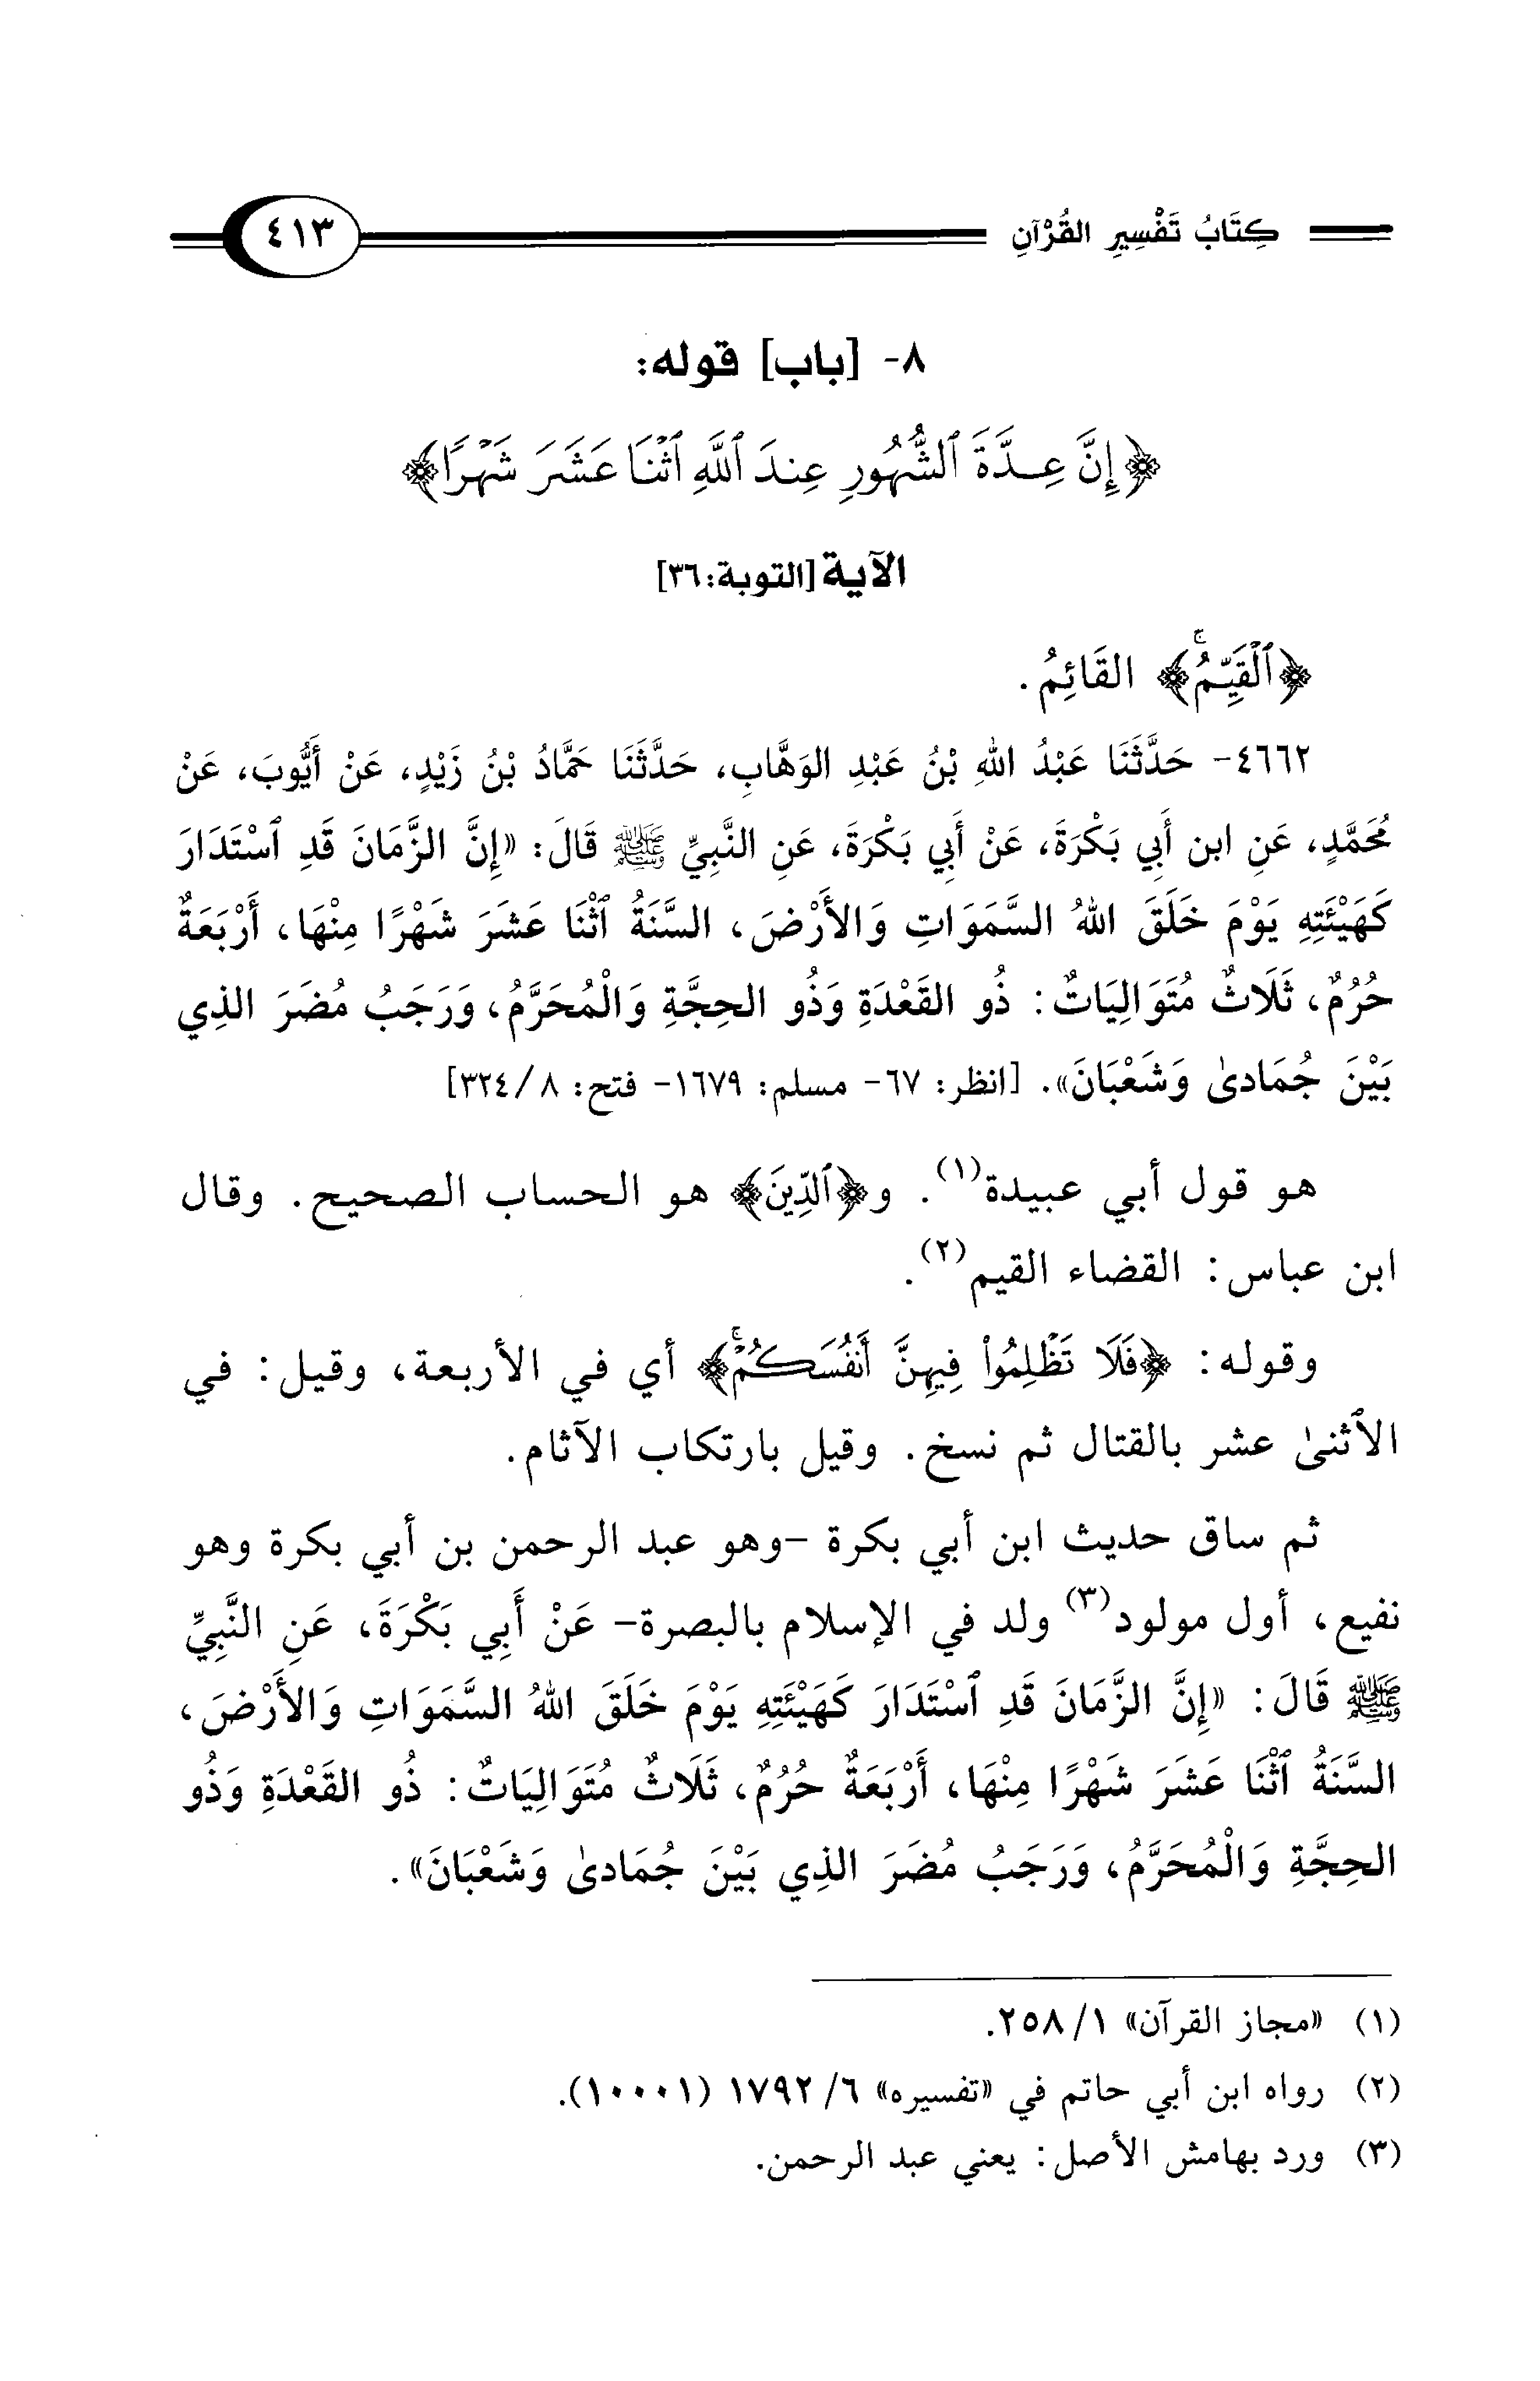 كِتَابُ تَفْسِيرِ القُرْآنِ ٤١٣
٨- [باب] قوله:
﴿إِنَّ عِدَّةَ ٱلشُّهُورِ عِندَ ٱللَّهِ ٱثْنَا عَشَرَ شَهْرًا﴾
الآية [التوبة: ٣٦]
﴿ٱلْقَيِّمُ ۚ﴾ القَائِمُ.
٤٦٦٢- حَدَّثَنَا عَبْدُ اللهِ بْنُ عَبْدِ الوَهَّابِ، حَدَّثَنَا حَمَّادُ بْنُ زَيْدٍ، عَنْ أَيُّوبَ، عَنْ
مُحَمَّدٍ، عَنِ ابن أَبِي بَكْرَةَ، عَنْ أَبِي بَكْرَةَ، عَنِ النَّبِيِّ ﷺ قَالَ: «إِنَّ الزَّمَانَ قَدِ ٱسْتَدَارَ
كَهَيْئَتِهِ يَوْمَ خَلَقَ اللهُ السَّمَوَاتِ وَالأَرْضَ، السَّنَةُ ٱثْنَا عَشَرَ شَهْرًا مِنْهَا، أَرْبَعَةٌ
حُرُمٌ، ثَلَاثٌ مُتَوَالِيَاتٌ: ذُو القَعْدَةِ وَذُو الحِجَّةِ وَالْمُحَرَّمُ، وَرَجَبُ مُضَرَ الذِي
بَيْنَ جُمَادىٰ وَشَعْبَانَ». [انظر: ٦٧- مسلم: ١٦٧٩- فتح: ٨/ ٣٢٤]
هو قول أبي عبيدة(١). و﴿ٱلدِّينَ﴾ هو الحساب الصحيح. وقال
ابن عباس: القضاء القيم(٢).
وقوله: ﴿فَلَا تَظْلِمُوا۟ فِيهِنَّ أَنفُسَكُمْ ۚ﴾ أي في الأربعة، وقيل: في
الأثنىٰ عشر بالقتال ثم نسخ. وقيل بارتكاب الآثام.
ثم ساق حديث ابن أبي بكرة -وهو عبد الرحمن بن أبي بكرة وهو
نفيع، أول مولود(٣) ولد في الإسلام بالبصرة- عَنْ أَبِي بَكْرَةَ، عَنِ النَّبِيِّ
ﷺ قَالَ: «إِنَّ الزَّمَانَ قَدِ ٱسْتَدَارَ كَهَيْئَتِهِ يَوْمَ خَلَقَ اللهُ السَّمَوَاتِ وَالأَرْضَ،
السَّنَةُ ٱثْنَا عَشَرَ شَهْرًا مِنْهَا، أَرْبَعَةٌ حُرُمٌ، ثَلَاثٌ مُتَوَالِيَاتٌ: ذُو القَعْدَةِ وَذُو
الحِجَّةِ وَالْمُحَرَّمُ، وَرَجَبُ مُضَرَ الذِي بَيْنَ جُمَادىٰ وَشَعْبَانَ».
(١) «مجاز القرآن» ١/ ٢٥٨.
(٢) رواه ابن أبي حاتم في «تفسيره» ٦/ ١٧٩٢ (١٠٠٠١).
(٣) ورد بهامش الأصل: يعني عبد الرحمن.